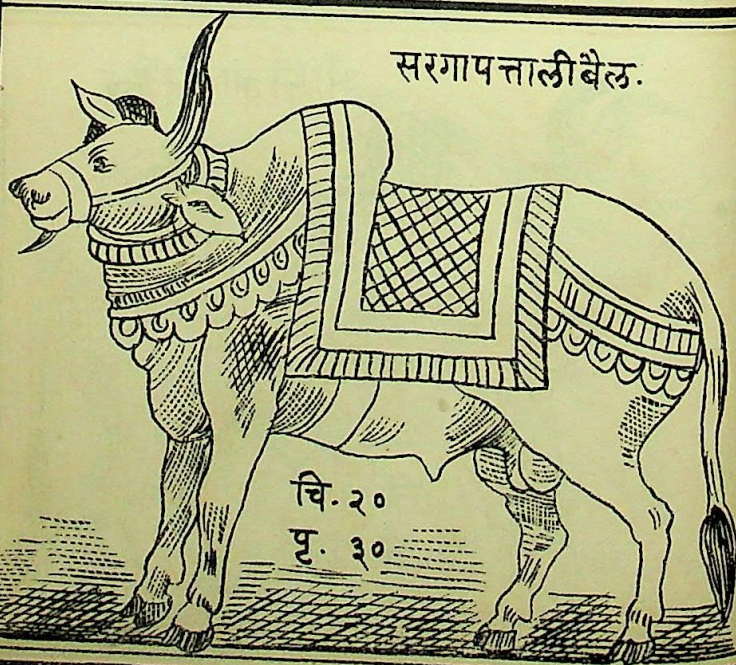 सरगापत्तालीबैल.
चि. २०
पृ. ३०